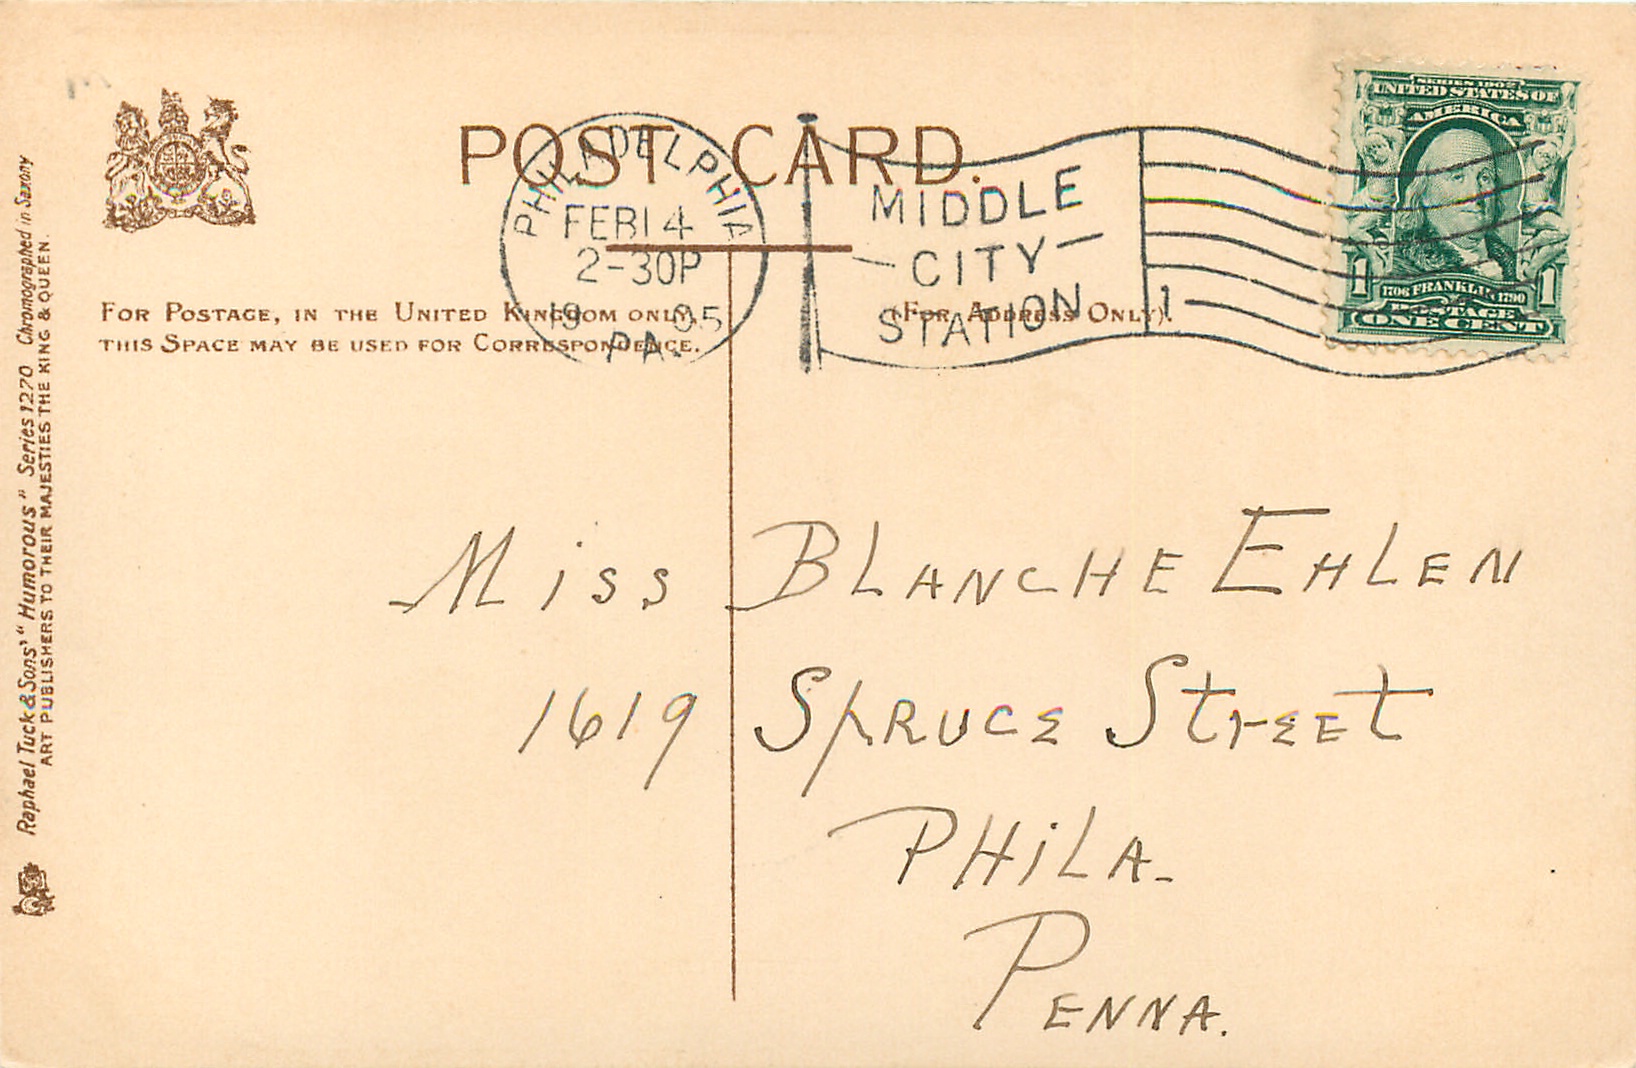 POST CARD.
PHILADELPHIA
FEB 14
2-30P
1905
PA.
MIDDLE
CITY
STATION
1
SERIES 1902
UNITED STATES OF
AMERICA
1706 FRANKLIN 1790
1 1
POSTAGE
ONE CENT
FOR POSTAGE, IN THE UNITED KINGDOM ONLY,
THIS SPACE MAY BE USED FOR CORRESPONDENCE.
(FOR ADDRESS ONLY)
Raphael Tuck & Sons' "Humorous" Series 1270 Chromographed in Saxony
ART PUBLISHERS TO THEIR MAJESTIES THE KING & QUEEN.
Miss BLANCHE EHLEN
1619 SPRUCE STREET
PHiLA.
PENNA.